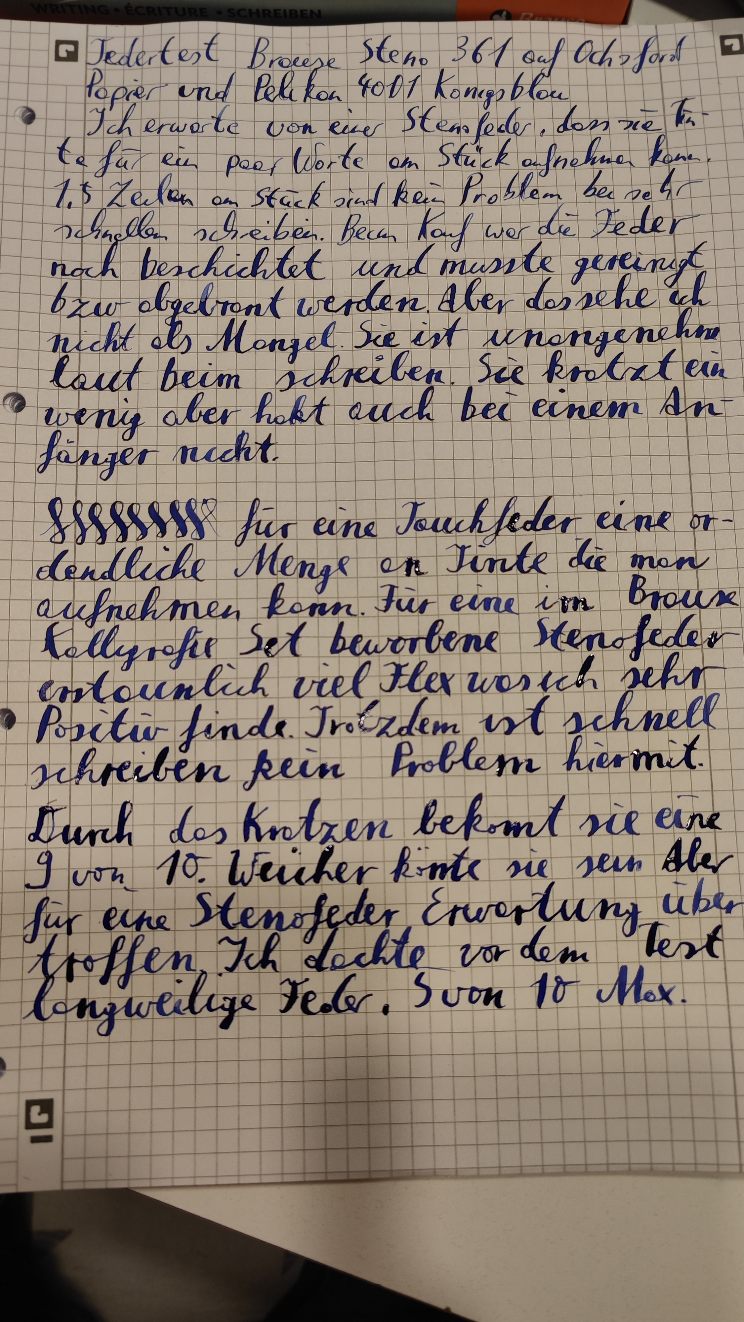 WRITING • ÉCRITURE • SCHREIBEN
Federtest Brause Steno 361 auf Ochsford
Papier und Pelikan 4001 Königsblau
Ich erwarte von einer Stenofeder, dass sie Tin-
te für ein paar Worte am Stück aufnehmen kann.
1,5 Zeilen am Stück sind kein Problem bei sehr
schnellen schreiben. Beim Kauf war die Feder
noch beschichtet und musste gereinigt
bzw abgebrant werden. Aber das sehe ich
nicht als Mangel. Sie ist unangenehm
laut beim schreiben. Sie kratzt ein
wenig aber hakt auch bei einem An-
fänger nicht.
für eine Tauchfeder eine or-
dendliche Menge an Tinte die man
aufnehmen kann. Für eine im Brause
Kallygrafie Set beworbene Stenofeder
erstaunlich viel Flex was ich sehr
Positiv finde. Trotzdem ist schnell
schreiben kein Problem hiermit.
Durch das Kratzen bekomt sie eine
9 von 10. Weicher könte sie sein Aber
für eine Stenofeder Erwartung über
troffen. Ich dachte vor dem Test
langweilige Feder. 5 von 10 Max.